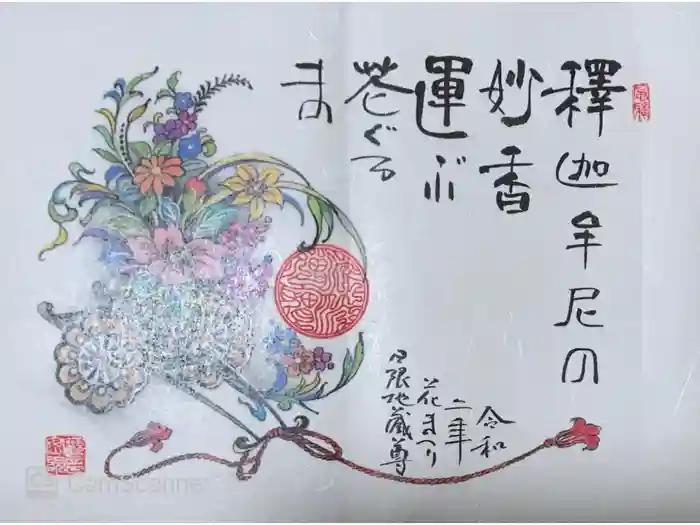 釋迦牟尼の
妙香
運ぶ
花ぐる
ま
令和
二年
花まつり
日限地蔵尊
CamScanner